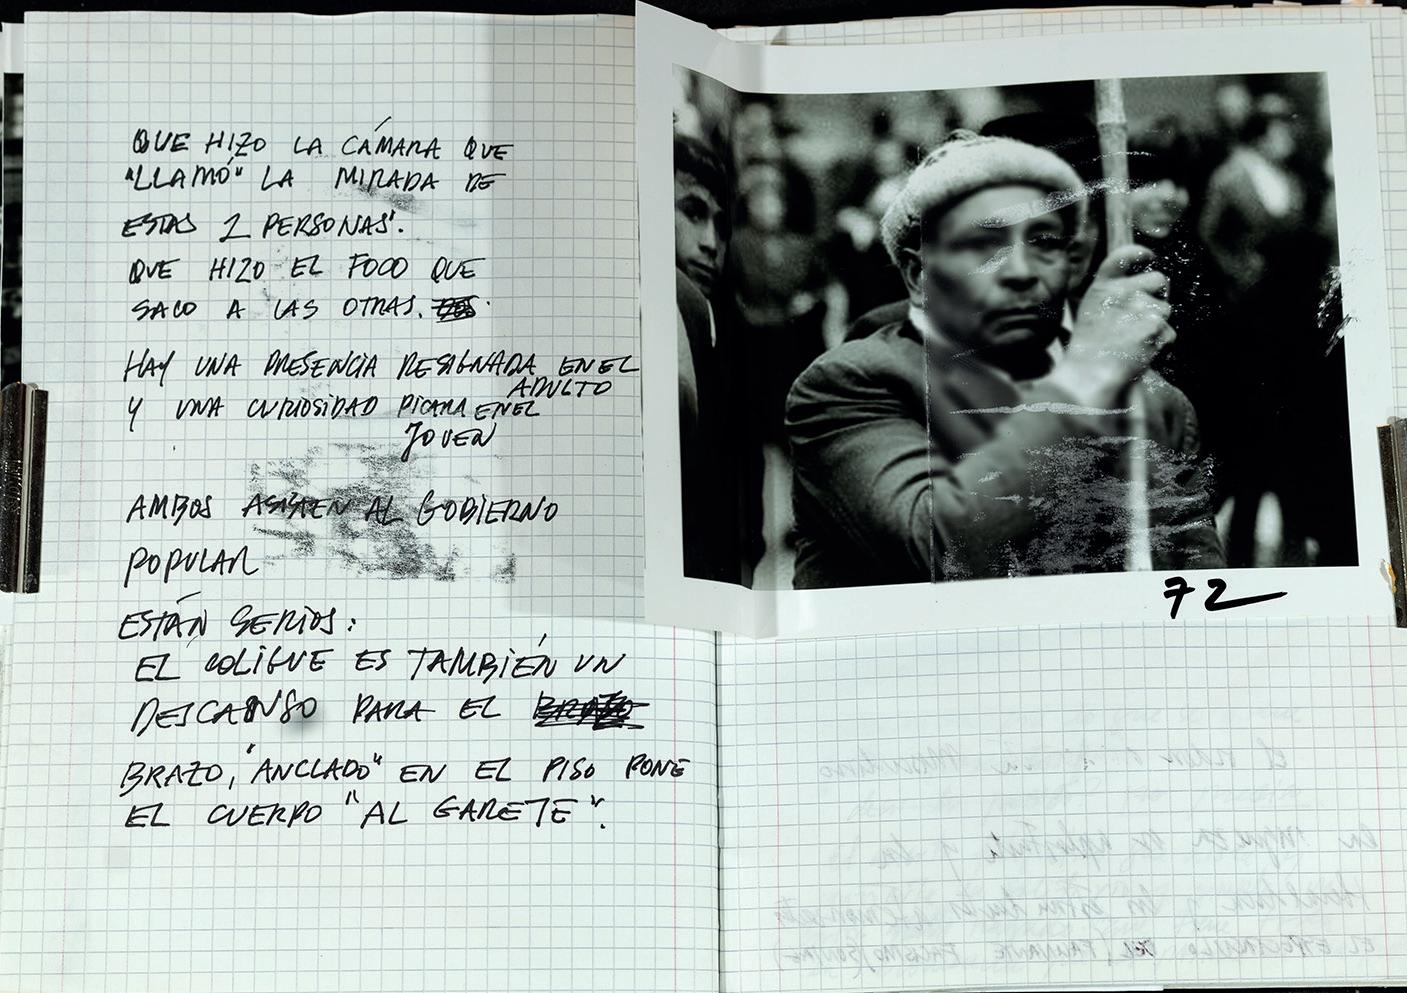 QUE HIZO LA CÁMARA QUE
"LLAMÓ" LA MIRADA DE
ESTAS 2 PERSONAS.
QUE HIZO EL FOCO QUE
SACO A LAS OTRAS.
HAY UNA PRESENCIA RESIGNADA EN EL
ADULTO
Y UNA CURIOSIDAD PICARA EN EL
JOVEN
AMBOS ASISTEN AL GOBIERNO
POPULAR
ESTÁN SERIOS:
EL COLIGUE ES TAMBIÉN UN
DESCANSO PARA EL
BRAZO, "ANCLADO" EN EL PISO PONE
EL CUERPO "AL GARETE".
72